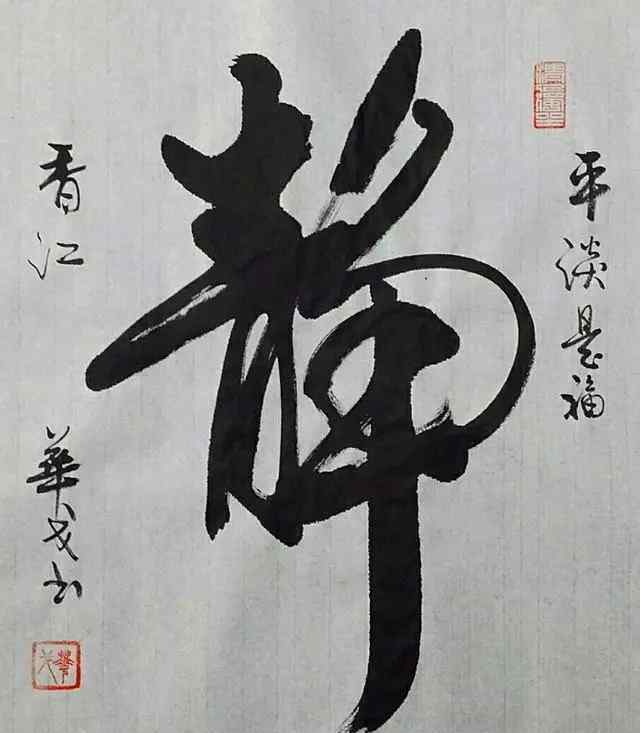 平淡是福
靜
香江
華戈书